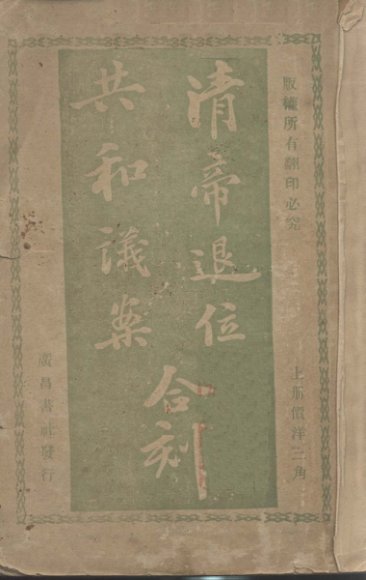 版權所有翻印必究
上下冊價洋二角
清帝退位
共和議案
合刻
廣昌書社發行